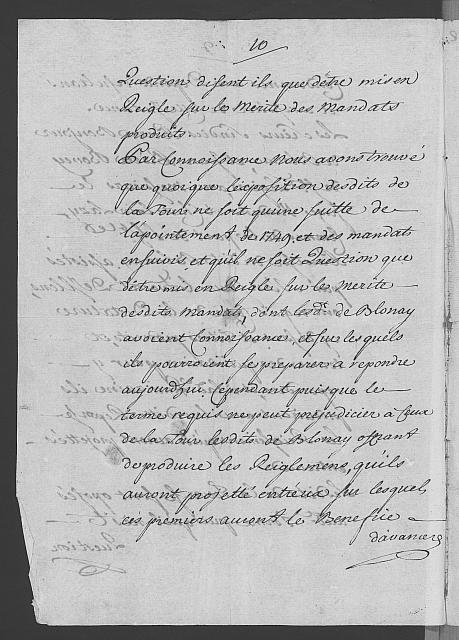 10
Question disent ils que d'etre mis en
Reigle sur le Merite des Mandats
produits
Par Connoissance Nous avons trouvé
que quoique lexposition desdits de
la Tour ne soit qu'une suitte de
lapointement de 1749 et des mandat
ensuivis, et qu'il ne soit Question que
d'etre mis en Reigle sur le Merite
desdits Mandats, dont lesdts de Blonay
avoient Connoissance, et sur lesquels
ils pourroient se preparer a repondre
aujourdhui, Cependant puisque le
terme requis ne peut préjudicier à Ceux
de la Tour lesdits de Blonay offrant
de produire les Reiglemens, qu'ils
auront projetté entreux sur lesquels
ces premiers auront le Benefice
d'avancer